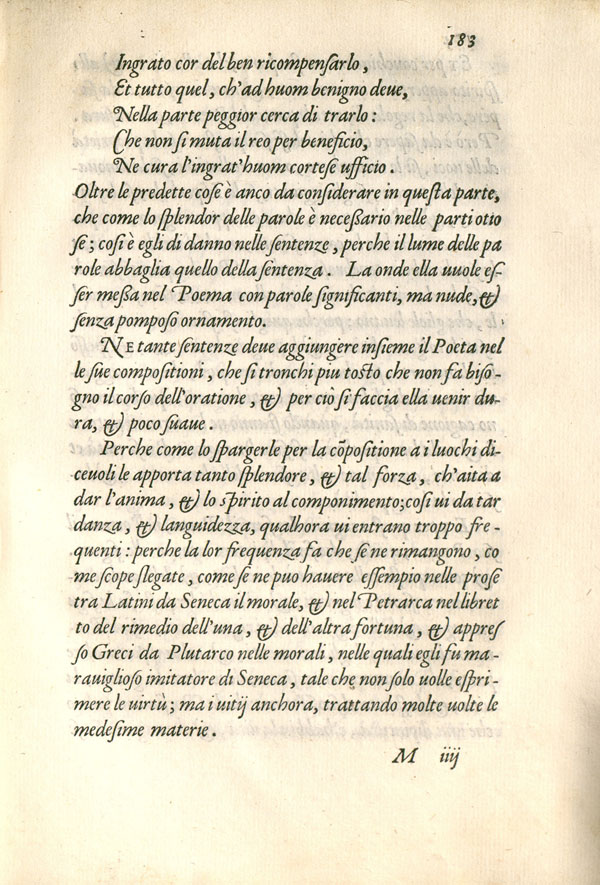 183
Ingrato cor del ben ricompensarlo,
Et tutto quel, ch'ad huom benigno deue,
Nella parte peggior cerca di trarlo:
Che non si muta il reo per beneficio,
Ne cura l'ingrat'huom cortese ufficio.
Oltre le predette cose è anco da considerare in questa parte,
che come lo splendor delle parole è necessario nelle parti otio
se; cosi è egli di danno nelle sentenze, perche il lume delle pa
role abbaglia quello della sentenza. La onde ella uuole es-
ser messa nel Poema con parole significanti, ma nude, &
senza pomposo ornamento.
NE tante sentenze deue aggiungere insieme il Poeta nel
le sue compositioni, che si tronchi piu tosto che non fa biso-
gno il corso dell'oratione, & per ciò si faccia ella uenir du-
ra, & poco suaue.
Perche come lo spargerle per la cõpositione a i luochi di-
ceuoli le apporta tanto splendore, & tal forza, ch'aita a
dar l'anima, & lo spirito al componimento; cosi ui da tar
danza, & languidezza, qualhora ui entrano troppo fre-
quenti: perche la lor frequenza fa che se ne rimangono, co
me scope slegate, come se ne puo hauere essempio nelle prose
tra Latini da Seneca il morale, & nel Petrarca nel libret
to del rimedio dell'una, & dell'altra fortuna, & appres
so Greci da Plutarco nelle morali, nelle quali egli fu ma-
rauiglioso imitatore di Seneca, tale che non solo uolle espri
mere le uirtù; ma i uitij anchora, trattando molte uolte le
medesime materie.
M iiij